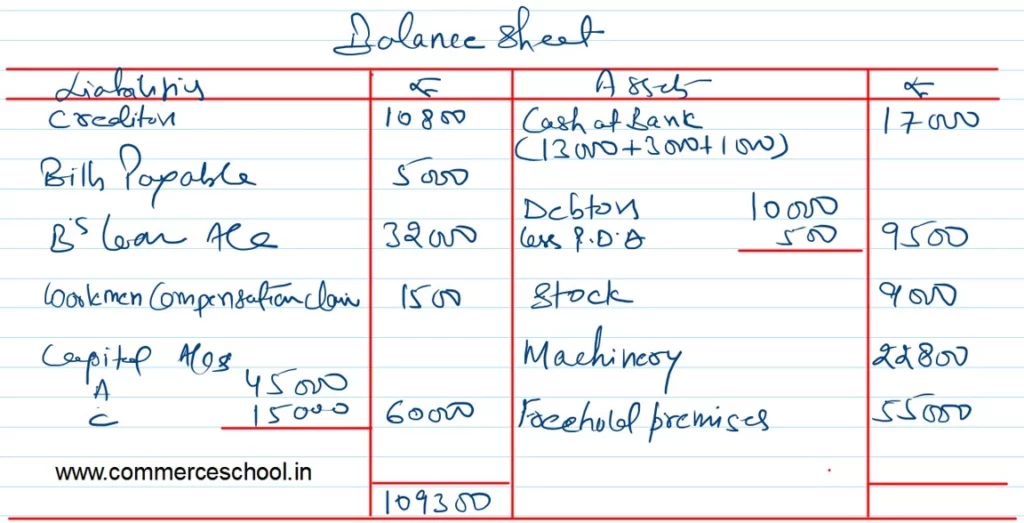 Balance Sheet
Liabilities ₹ Assets ₹
Creditors 10800 Cash at Bank 17000
(13000+3000+1000)
Bills Payable 5000
Debtors 10000
B's loan A/c 32000 less P.D.D 500 9500
Workmen Compensation claim 1500 Stock 9000
Capital A/cs Machinery 22800
A 45000
C 15000 60000 Freehold premises 55000
www.commerceschool.in
109300